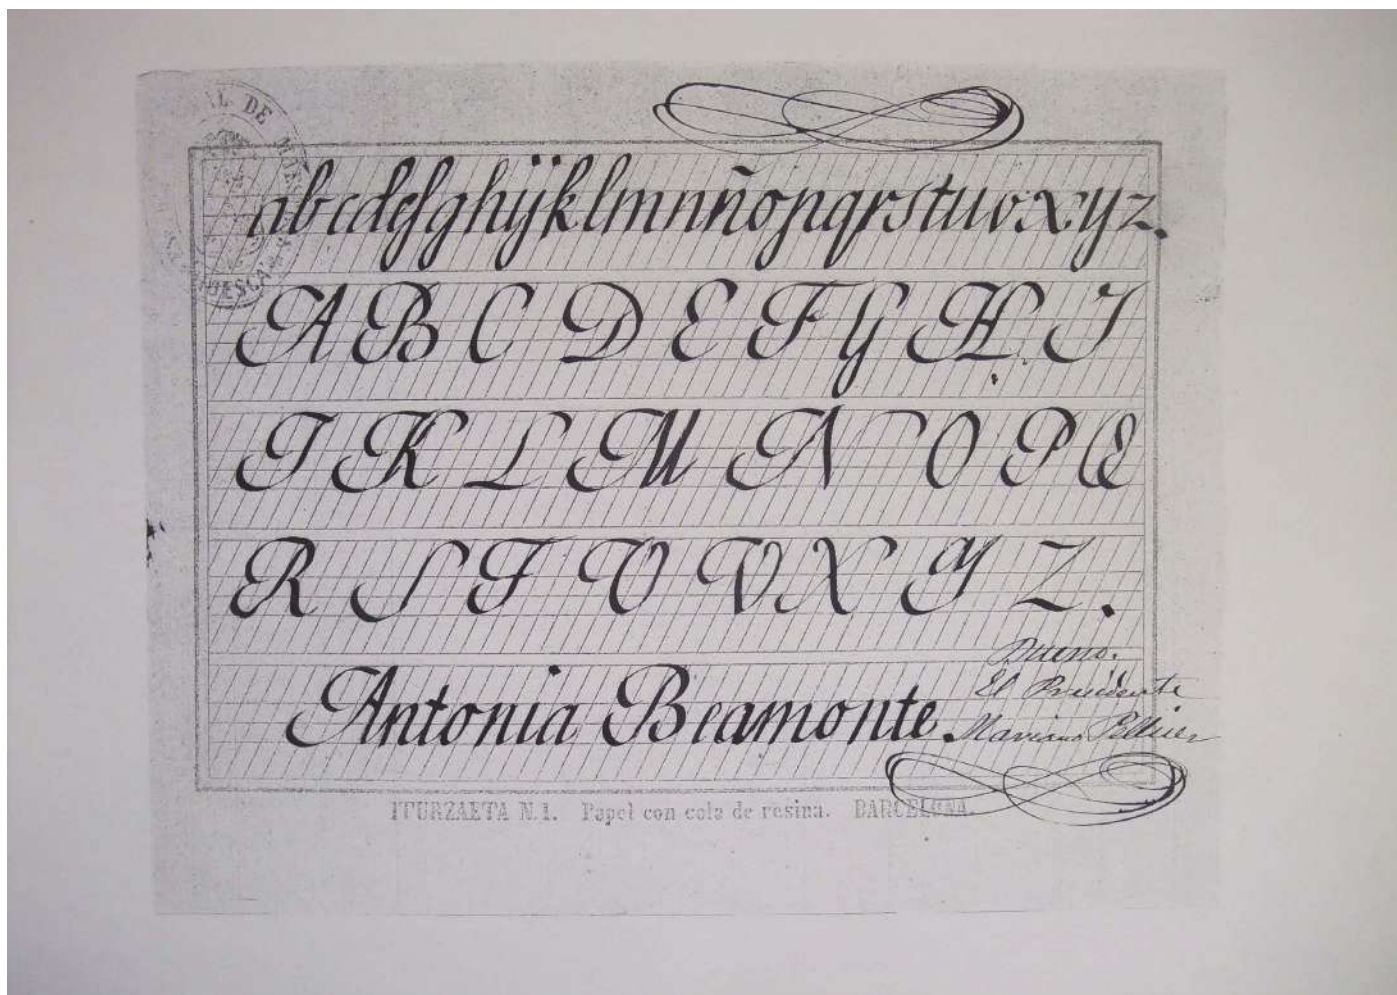 abcdefghijklmnñopqrstuvxyz.
A B C D E F G H I
J K L M N O P Q
R S T U V X Y Z.
Antonia Beamonte.
Bueno.
El Presidente
Mariano
ITURZAETA N.1. Papel con cola de resina. BARCELONA.